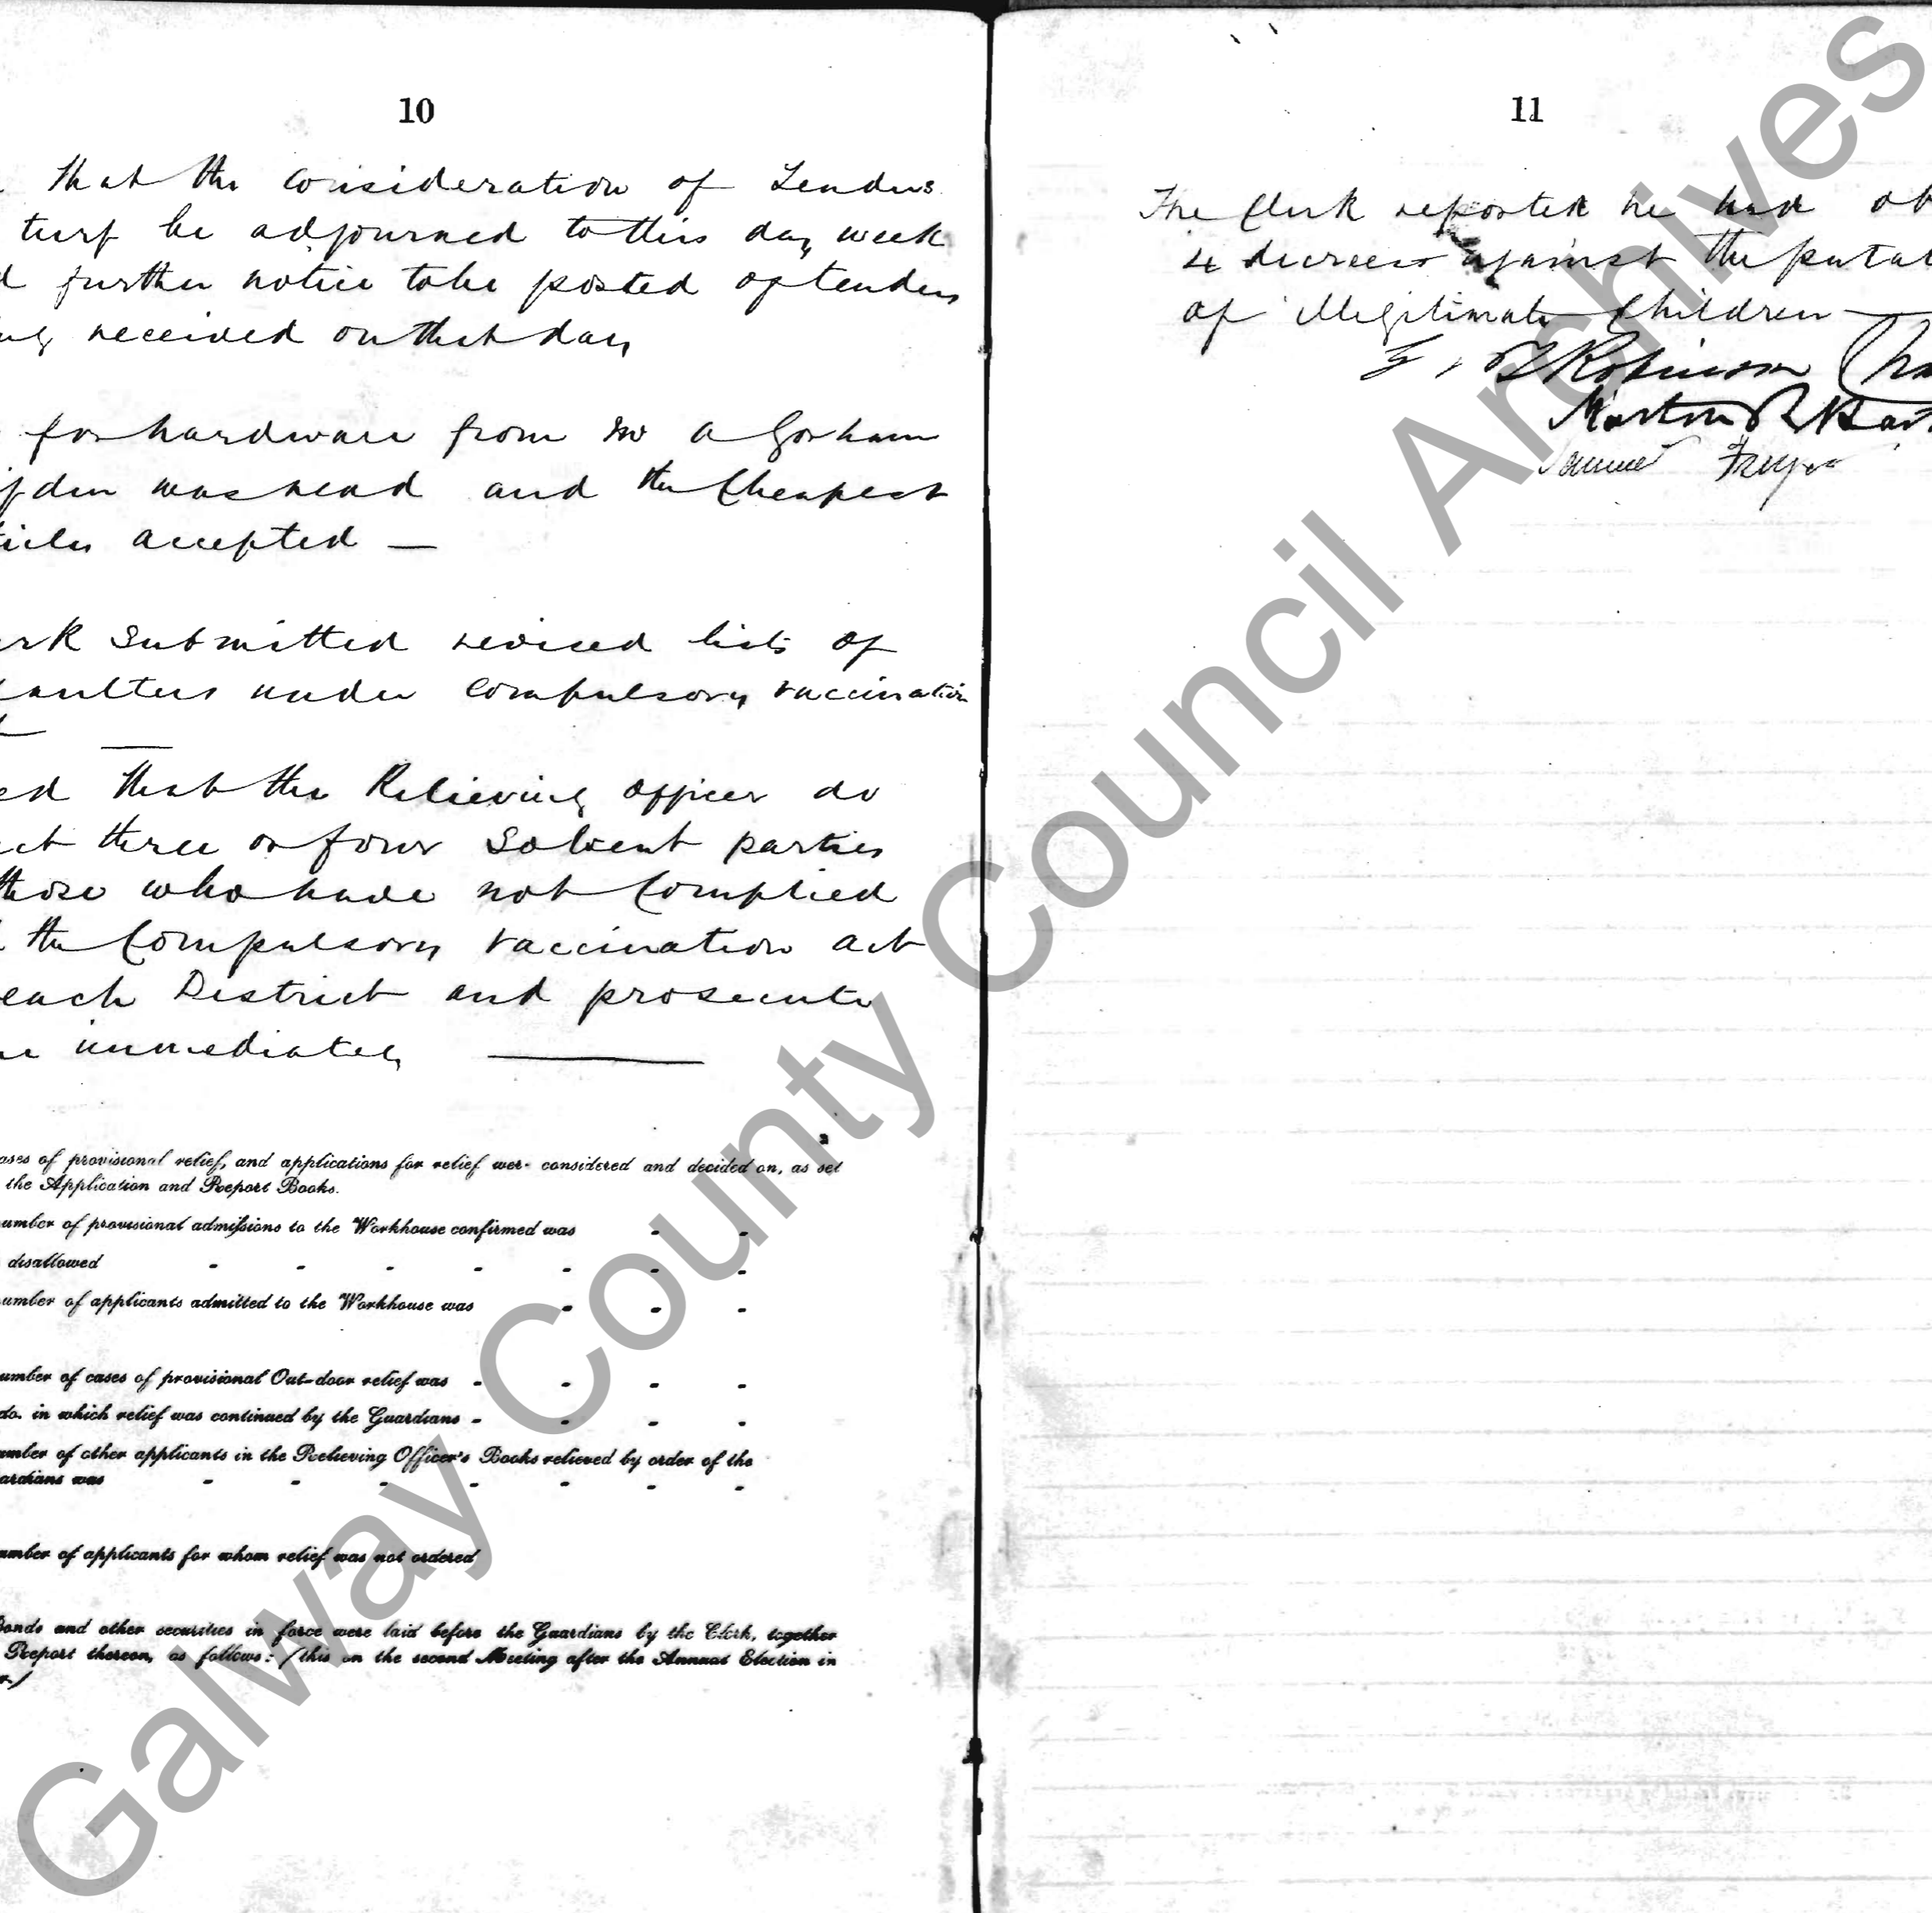 10
that the consideration of Tenders
turf be adjourned to this day week
further notice to be posted of tenders
received on that day
for hardware from Mr A Gorham
was read and the Cheapest
accepted —
submitted revised lists of
under Compulsory vaccination
that the Relieving officer do
three or four Solvent parties
those who have not Complied
the Compulsory vaccination act
each District and prosecute
immediately
ases of provisional relief, and applications for relief wer- considered and decided on, as set
the Application and Report Books.
umber of provisional admissions to the Workhouse confirmed was - -
disallowed - - - - - - -
umber of applicants admitted to the Workhouse was - - -
umber of cases of provisional Out-door relief was - - - -
do. in which relief was continued by the Guardians - - - -
umber of other applicants in the Relieving Officer's Books relieved by order of the
ardians was - - - - - - -
umber of applicants for whom relief was not ordered
Bonds and other securities in force were laid before the Guardians by the Clerk, together
Report thereon, as follows: (this on the second Meeting after the Annual Election in
r.)
11
The Clerk reported he had ob
4 decrees against the putat
of illegitimate Children —
Robinson
Galway County Council Archives